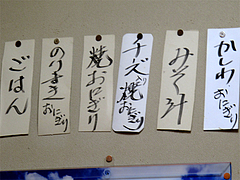 かしわおにぎり
みそ汁
チーズ焼おにぎり
焼おにぎり
のりまきおにぎり
ごはん